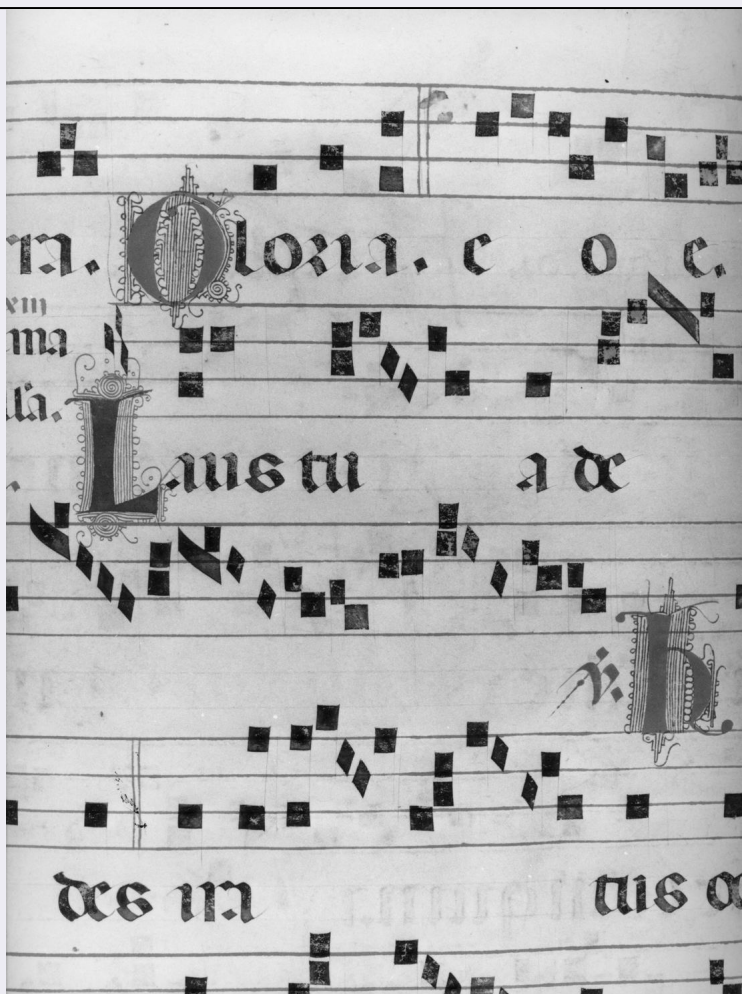 ra. Gloria. e o e.
ma
la.
Laus tu a de
℣. h
des in tus